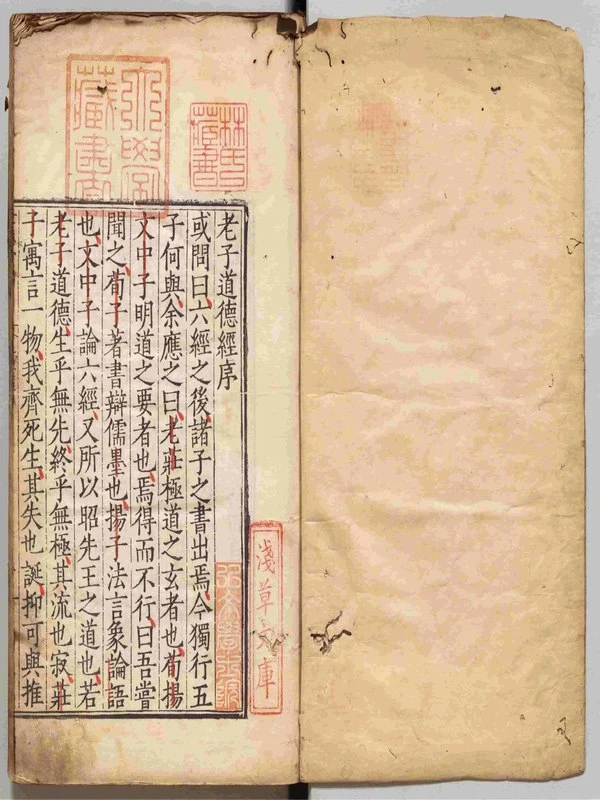 林氏
藏書
老子道德經序
或問曰六經之後諸子之書出焉今獨行五
子何與余應之曰老莊極道之玄者也荀揚
文中子明道之要者也焉得而不行曰吾嘗
聞之荀子著書辯儒墨也揚子法言象論語
也文中子論六經又所以昭先王之道也若
老子道德生乎無先終乎無極其流也寂莊
子寓言一物我齊死生其失也誕抑可與推
淺草文庫